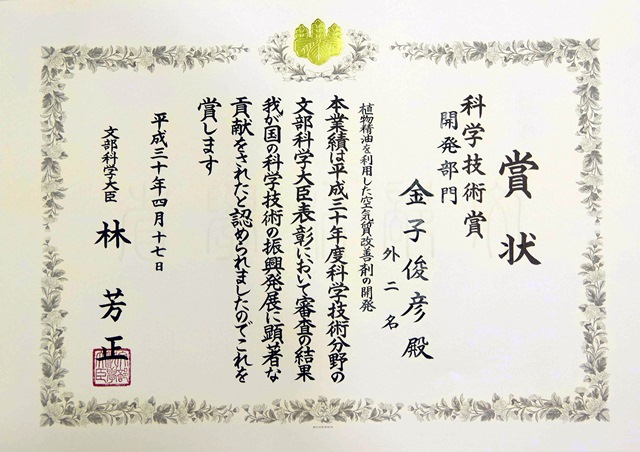 賞状
科学技術賞
開発部門
金子俊彦殿
外二名
植物精油を利用した空気質改善剤の開発
本業績は平成三十年度科学技術分野の
文部科学大臣表彰において審査の結果
我が国の科学技術の振興発展に顕著な
貢献をされたと認められましたのでこれを
賞します
平成三十年四月十七日
文部科学大臣
林芳正